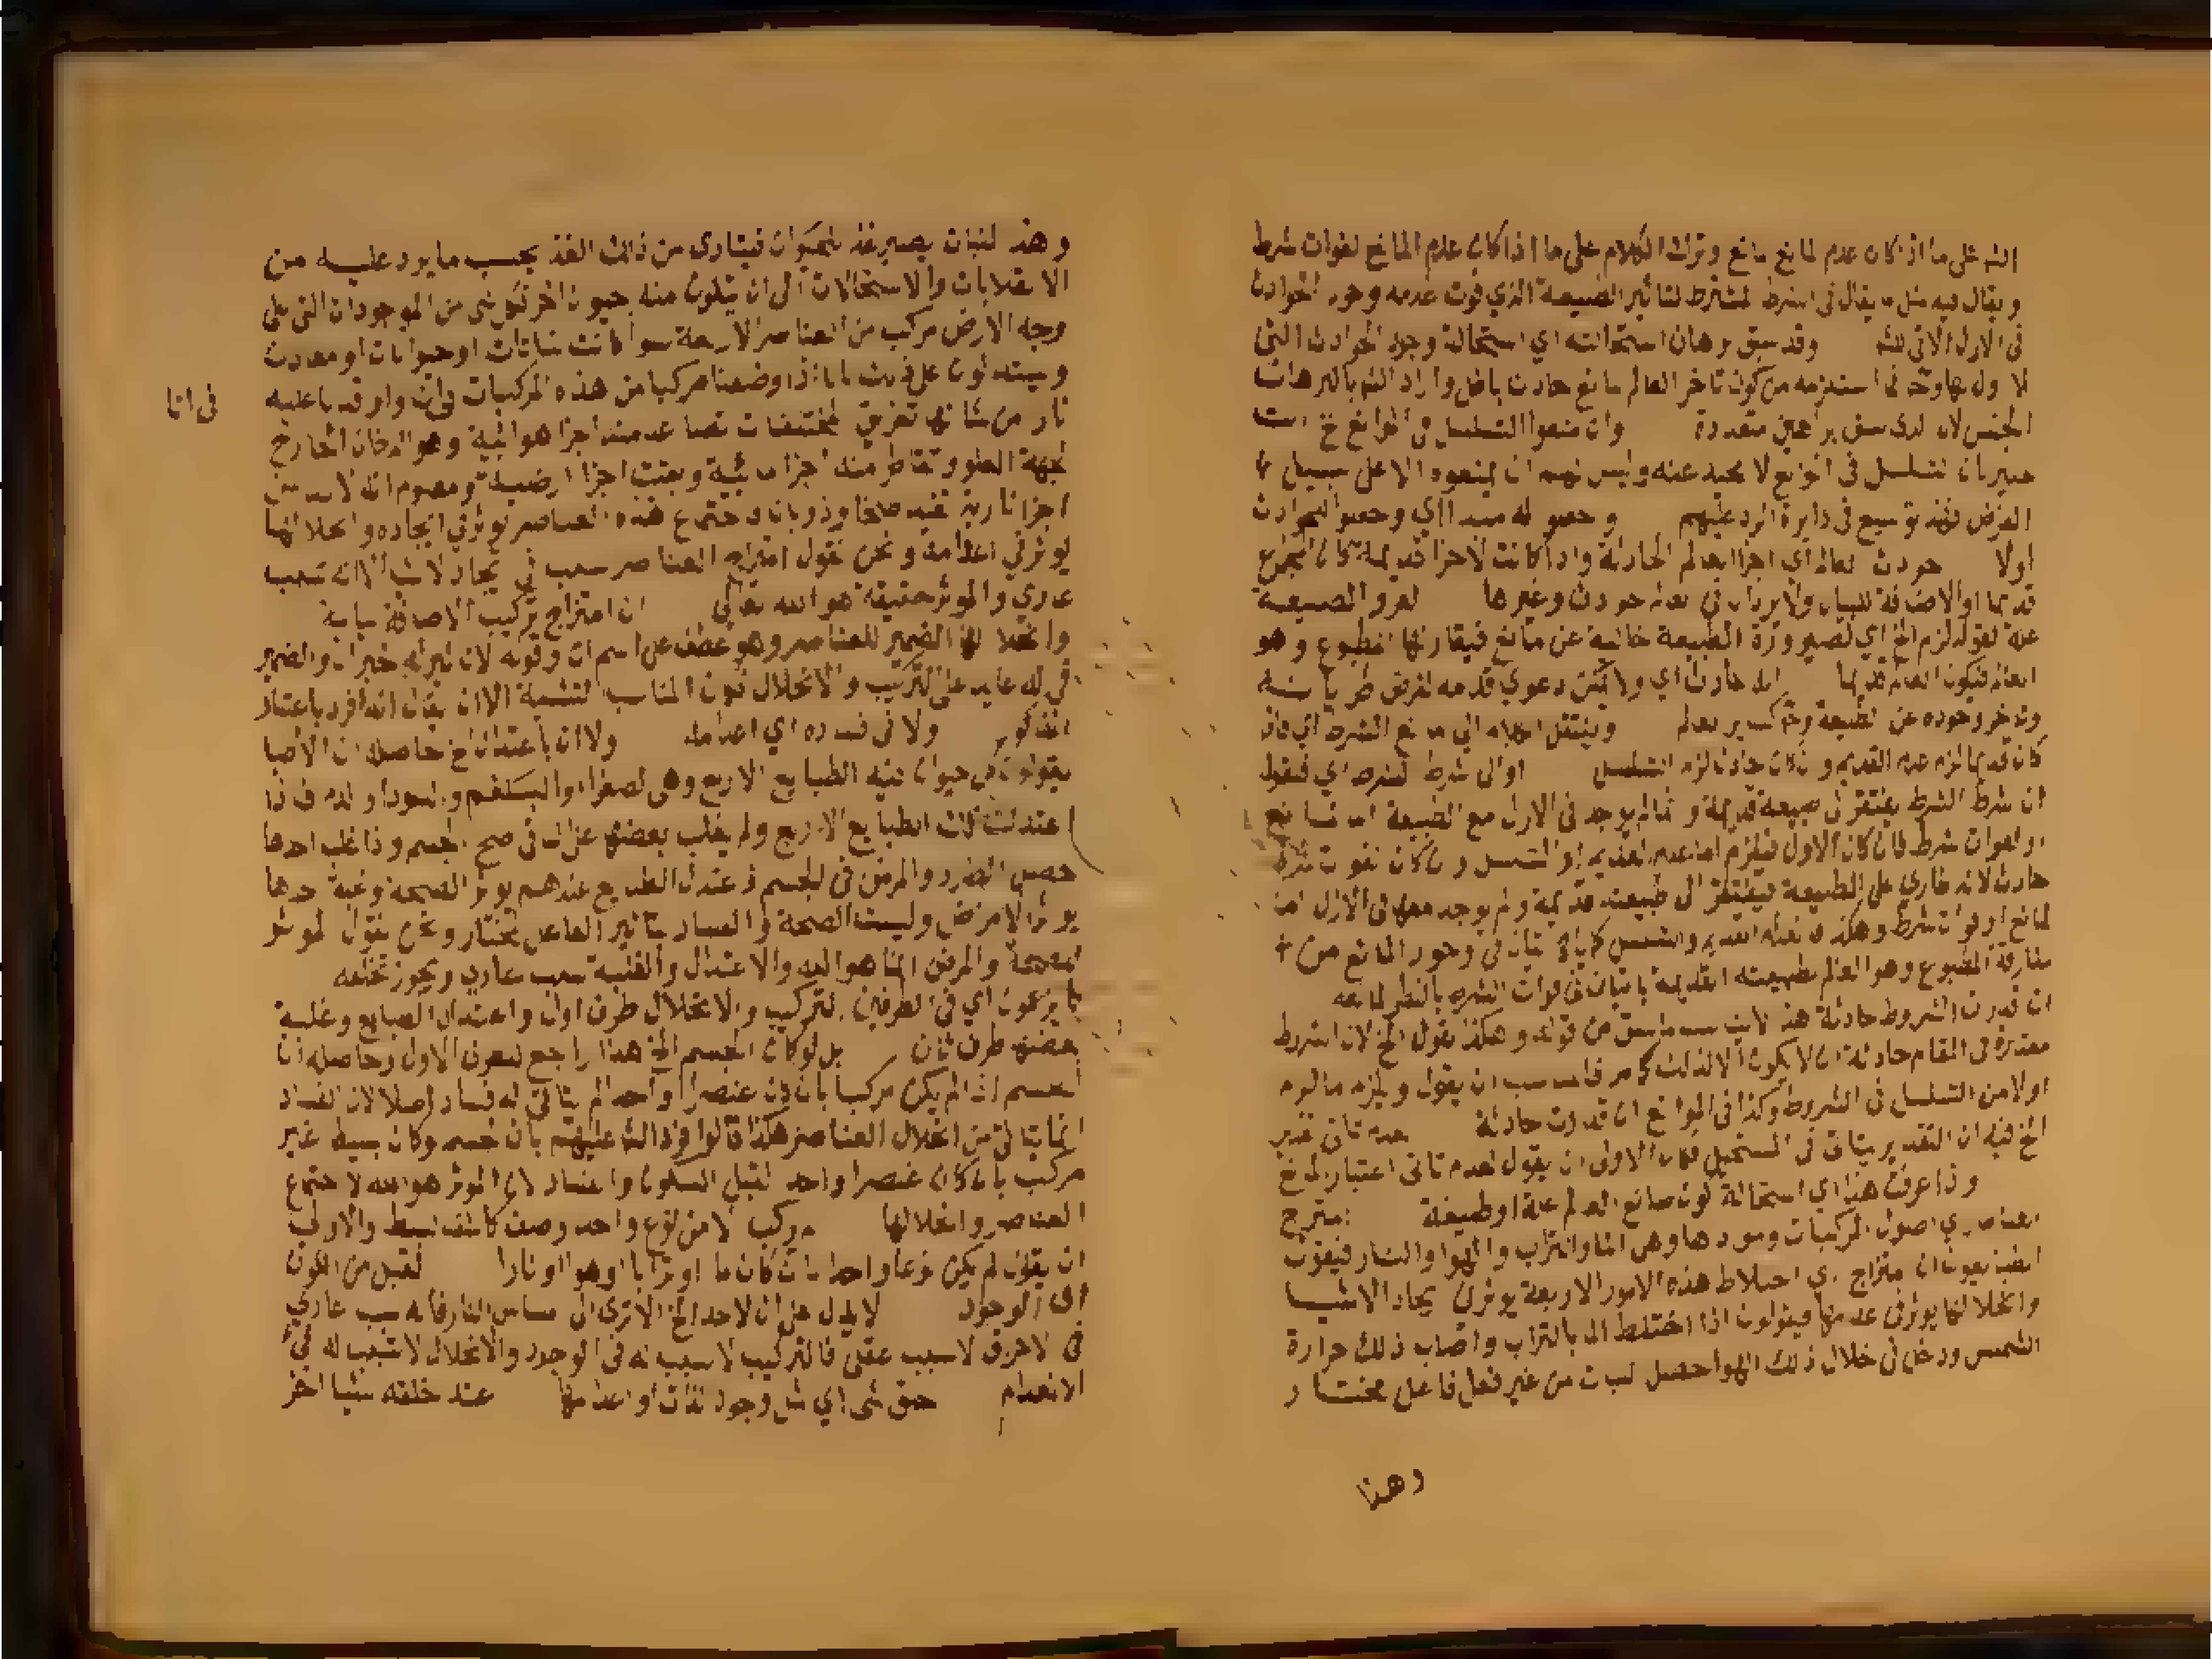 الشارح على ما اذا كان عدم المانع مانع وترك الكلام على ما اذا كان عدم المانع لفوات شرط
ويقال فيه مثل ما يقال فى الشرط المشترط لتاثير الطبيعة الذي فوت عدمه وجود الحوادث
فى الاول الاتى وقد سبق برهان استحالته اي استحالة وجود الحوادث التى
لا اول لها استلزمه من كون تاخر العالم مانع حادث باطل واراد الشه بالبرهان
الجنس لان الذى سبق براهين متعددة وان منعوا التسلسل فى الموانع
التسلسل فى الموانع لا محيد عنه وليس لهم ان يمنعوه الا على سبيل
الفرض فهذه توسيع فى دايرة الرد عليهم اي وجميع الحوادث
اولا حودث العالم اي اجزا العالم الحادثة واذا كانت الاجزا قديمة كان المجموع
قديما او الاضافة للبيان فى حودث وغيرها لعرو الطبيعة
علة لقوله لزم الخ اي لصيرورة الطبيعة خالية عن مانع فيقارنها المطبوع وهو
العالم فيكون العالم قديما حادث اي ولا يمكن دعوي قدمه لفرض طريانه
وتاخر وجوده عن الطبيعة العالم وينتقل الكلام الى مانع الشرط اي فان
كان قديما لزم عدم القديم وان كان حادثا لزم التسلسل او الى شرط الشرط اي فنقول
ان شرط الشرط يفتقر الى طبيعة قديمة ولم يوجد فى الازل مع الطبيعة اما لمانع
او لفوات شرط فان كان الاول فيلزم اما عدم القديم او التسلسل وان كان لفوات شرط
حادث لانه طاري على الطبيعة فيفتقر الى طبيعة قديمة ولم يوجد معها فى الازل اما
لمانع او فوات شرط وهكذا القديم والتسلسل كما يقال فى وجود المانع من
مفارقة المطبوع وهو العالم لطبيعته القديمة يقال فى فوات الشرط بالنظر لمانعه
ان قدرت الشروط حادثة هذا لا يناسب ما سبق من قوله وهكذا نقول الخ لان الشروط
معتبرة فى المقام حادثة اذ لا يكون الا لذلك كما مر فالمناسب ان يقول ويلزم ما لزم
اولا من التسلسل فى الشروط وكذا فى الموانع ان قدرت حادثة
الخ فيه ان التقدير يتاتى فى المستحيل فكان الاولى ان يقول لعدم تاتى اعتبار المانع
واذا عرفت هذا اي استحالة كون صانع العالم علة او طبيعة امتزج
العناصر اي اصول المركبات وموادها وهى الما والتراب والهوا والنار فيقول
الطبايعيون ان امتزاج اي اختلاط هذه الامور الاربعة يوثر فى ايجاد الاشيا
وانحلالها يوثر فى عدمها فيقولون اذا اختلط الما بالتراب واصاب ذلك حرارة
الشمس ودخل فى خلال ذلك الهوا حصل النبات من غير فعل فاعل مختار
وهذا
وهذا النبات يصير غذا للحيوان فيتاوى من ذلك الغذا بحسب ما يرد عليه من
الانقلابات والاستحالات الى ان يتكون منه حيوان اخر فكل شى من الموجودات التى على
وجه الارض مركب من العناصر الاربعة سوا كانت نباتات او حيوانات او معادن
ويستدلون على ذلك بانا اذا وضعنا مركبا من هذه المركبات فى انا واوقدنا عليه
فى انا
نار من شانها تفريق المختلفات تصاعد منه اجزا هوائية وهو الدخان الخارج
لجهة العلو وتقاطر منه اجزا مائية وبقيت اجزا ارضية ومعلوم انه لا بد من
اجزا نارية تفيد طبخا وذوبانا فاجتماع هذه العناصر يوثر فى ايجاده وانحلالها
يوثر فى اعدامه ونحن نقول امتزاج العناصر سبب فى ايجاد الاشيا الا انه سبب
عادي والموثر حقيقة هو الله تعالى ان امتزاج تركيب الاضافة بيانية
وانحلالها الضمير للعناصر وهو عطف على اسم ان وقوله لا تاثير له خبر ان والضمير
فى له عايد على التركيب والانحلال فكان المناسب التثنية الا ان يقال انه افرد باعتبار
المذكور ولا فى فساده اي اعدامه ولا ان باعتدال الخ حاصله ان الاطبا
يقولون كل حيوان فيه الطبايع الاربع وهى الصفراء والبلغم والسودا والدم فاذا
اعتدلت تلك الطبايع الاربع ولم يغلب بعضها على الثانى صح الجسم واذا غلب احدها
حصل الضرر والمرض فى الجسم فاعتدال الطبايع عندهم يوثر الصحة وغلبة احدها
يوثر الامراض وليست الصحة والفساد بتاثير الفاعل المختار ونحن نقول الموثر
للصحة والمرض انما هو الله والاعتدال والغلبة سبب عادي ويجوز تخلفه
كما يزعمون اي فى الطرفين التركيب والانحلال طرف اول واعتدال الطبايع وغلبة
بعضها طرف ثان بل لو كان الجسم الخ هذا راجع للطرف الاول وحاصله ان
الجسم اذا لم يكن مركبا بان كان عنصرا واحدا لم يتاتى له فساد اصلا لان الفساد
انما يتاتى من انحلال العناصر هكذا قالوا فرد الشه عليهم بان الجسم لو كان بسيط غير
مركب بان كان عنصرا واحد لقبل الكون والفساد لان الموثر هو الله لا اجتماع
العناصر وانحلالها مركب لا من نوع واحد وصف كاشف لبسيط والاولى
ان يقول لم يكن نوعا واحدا بان كان ما او ترابا او هوا او نارا لقبل من الكون
اي الوجود لا يدل على ان لاحد الخ الا ترى الى مساس النار فانه سبب عادي
فى الاحراق لا سبب عقلى فالتركيب لا سبب له فى الوجود والانحلال لا تسبب له فى
الانعدام حق شى اي مثل وجود لذات او اعدامها عند خلقه شيا اخر